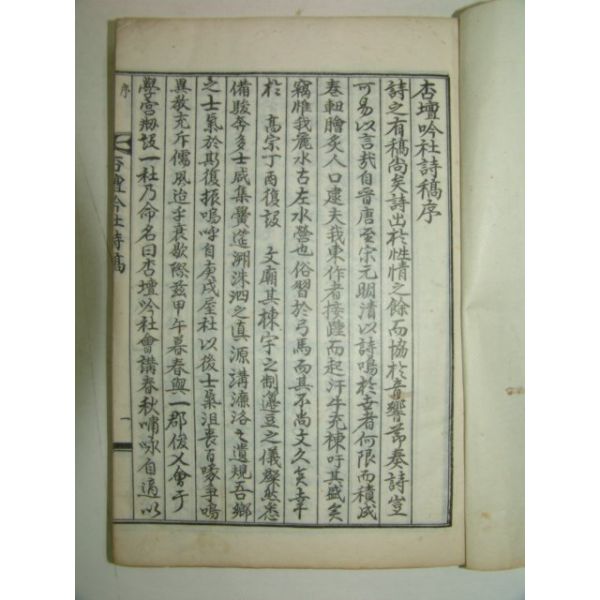 杏壇吟社詩稿序
詩之有稿尚矣詩出於性情之餘而協於音響節奏詩豈
可易以言哉自晉唐至宋元明清以詩鳴於世者何限而積成
卷軸膾炙人口逮夫我東作者接踵而起汗牛充棟吁其盛矣
竊惟我麗水古左水營也俗習於弓馬而其不尚文久矣幸
於 高宗丁丙復設 文廟其棟宇之制籩豆之儀燦然悉
備駿奔多士咸集黌筵溯洙泗之眞源講濂洛之遺規吾鄉
之士氣於斯復振嗚呼自庚戌屋社以後士氣沮喪百喙爭鳴
異敎充斥儒風迨乎衰歇際玆甲午暮春與一郡俊乂會于
學宮刱設一社乃命名曰杏壇吟社會講春秋嘯咏自適以
序
杏壇吟社詩稿
一